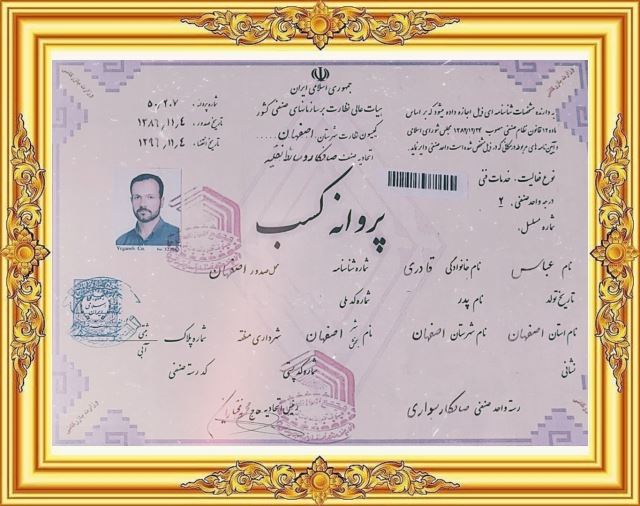 جمهوری اسلامی ایران
هیات عالی نظارت بر سازمانهای صنفی کشور
کمیسیون نظارت شهرستان اصفهان
اتحادیه صنف صافکار وسائط نقلیه
شماره پروانه: ۵۰۲۰۷
تاریخ صدور: ۱۳۸۶,۱۱,۴
تاریخ انقضاء: ۱۳۹۶,۱۱,۴
به دارنده مشخصات شناسنامه ای ذیل اجازه داده میشود که بر اساس
ماده ۱۲ قانون نظام صنفی مصوب ۱۳۸۲/۱۲/۲۴ مجلس شورای اسلامی
نوع فعالیت: خدمات فنی
درجه واحد صنفی: ۲
شماره مسلسل:
پروانه کسب
نام عباس نام خانوادگی قادری شماره شناسنامه محل صدور اصفهان
تاریخ تولد نام پدر شماره کد ملی
نام استان اصفهان نام شهرستان اصفهان نام شهر بخش اصفهان شهرداری منطقه شماره پلاک آبی
نشانی شماره کد پستی کد رسته صنفی
رسته واحد صنفی صافکار سواری رئیس اتحادیه